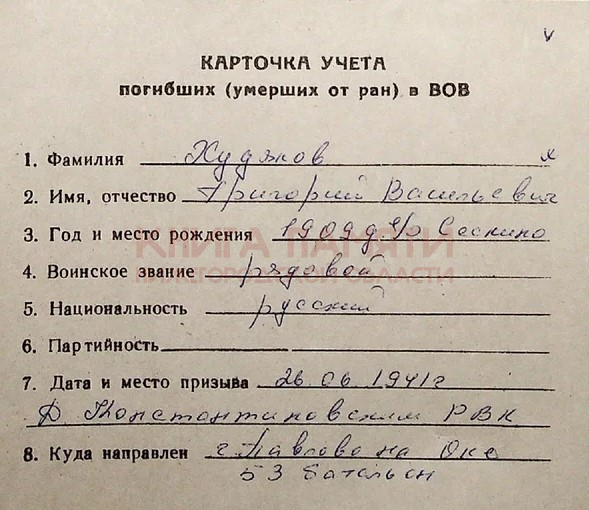 v
КАРТОЧКА УЧЕТА
погибших (умерших от ран) в ВОВ
1. Фамилия Худяков х
2. Имя, отчество Григорий Васильевич
3. Год и место рождения 1909 д. Соснино
КНИГА ПАМЯТИ
4. Воинское звание рядовой
НИЖЕГОРОДСКОЙ ОБЛАСТИ
5. Национальность русский
6. Партийность
7. Дата и место призыва 26.06.1941г
Д. Константиновским РВК
8. Куда направлен г. Павлово на Оке
53 батальон